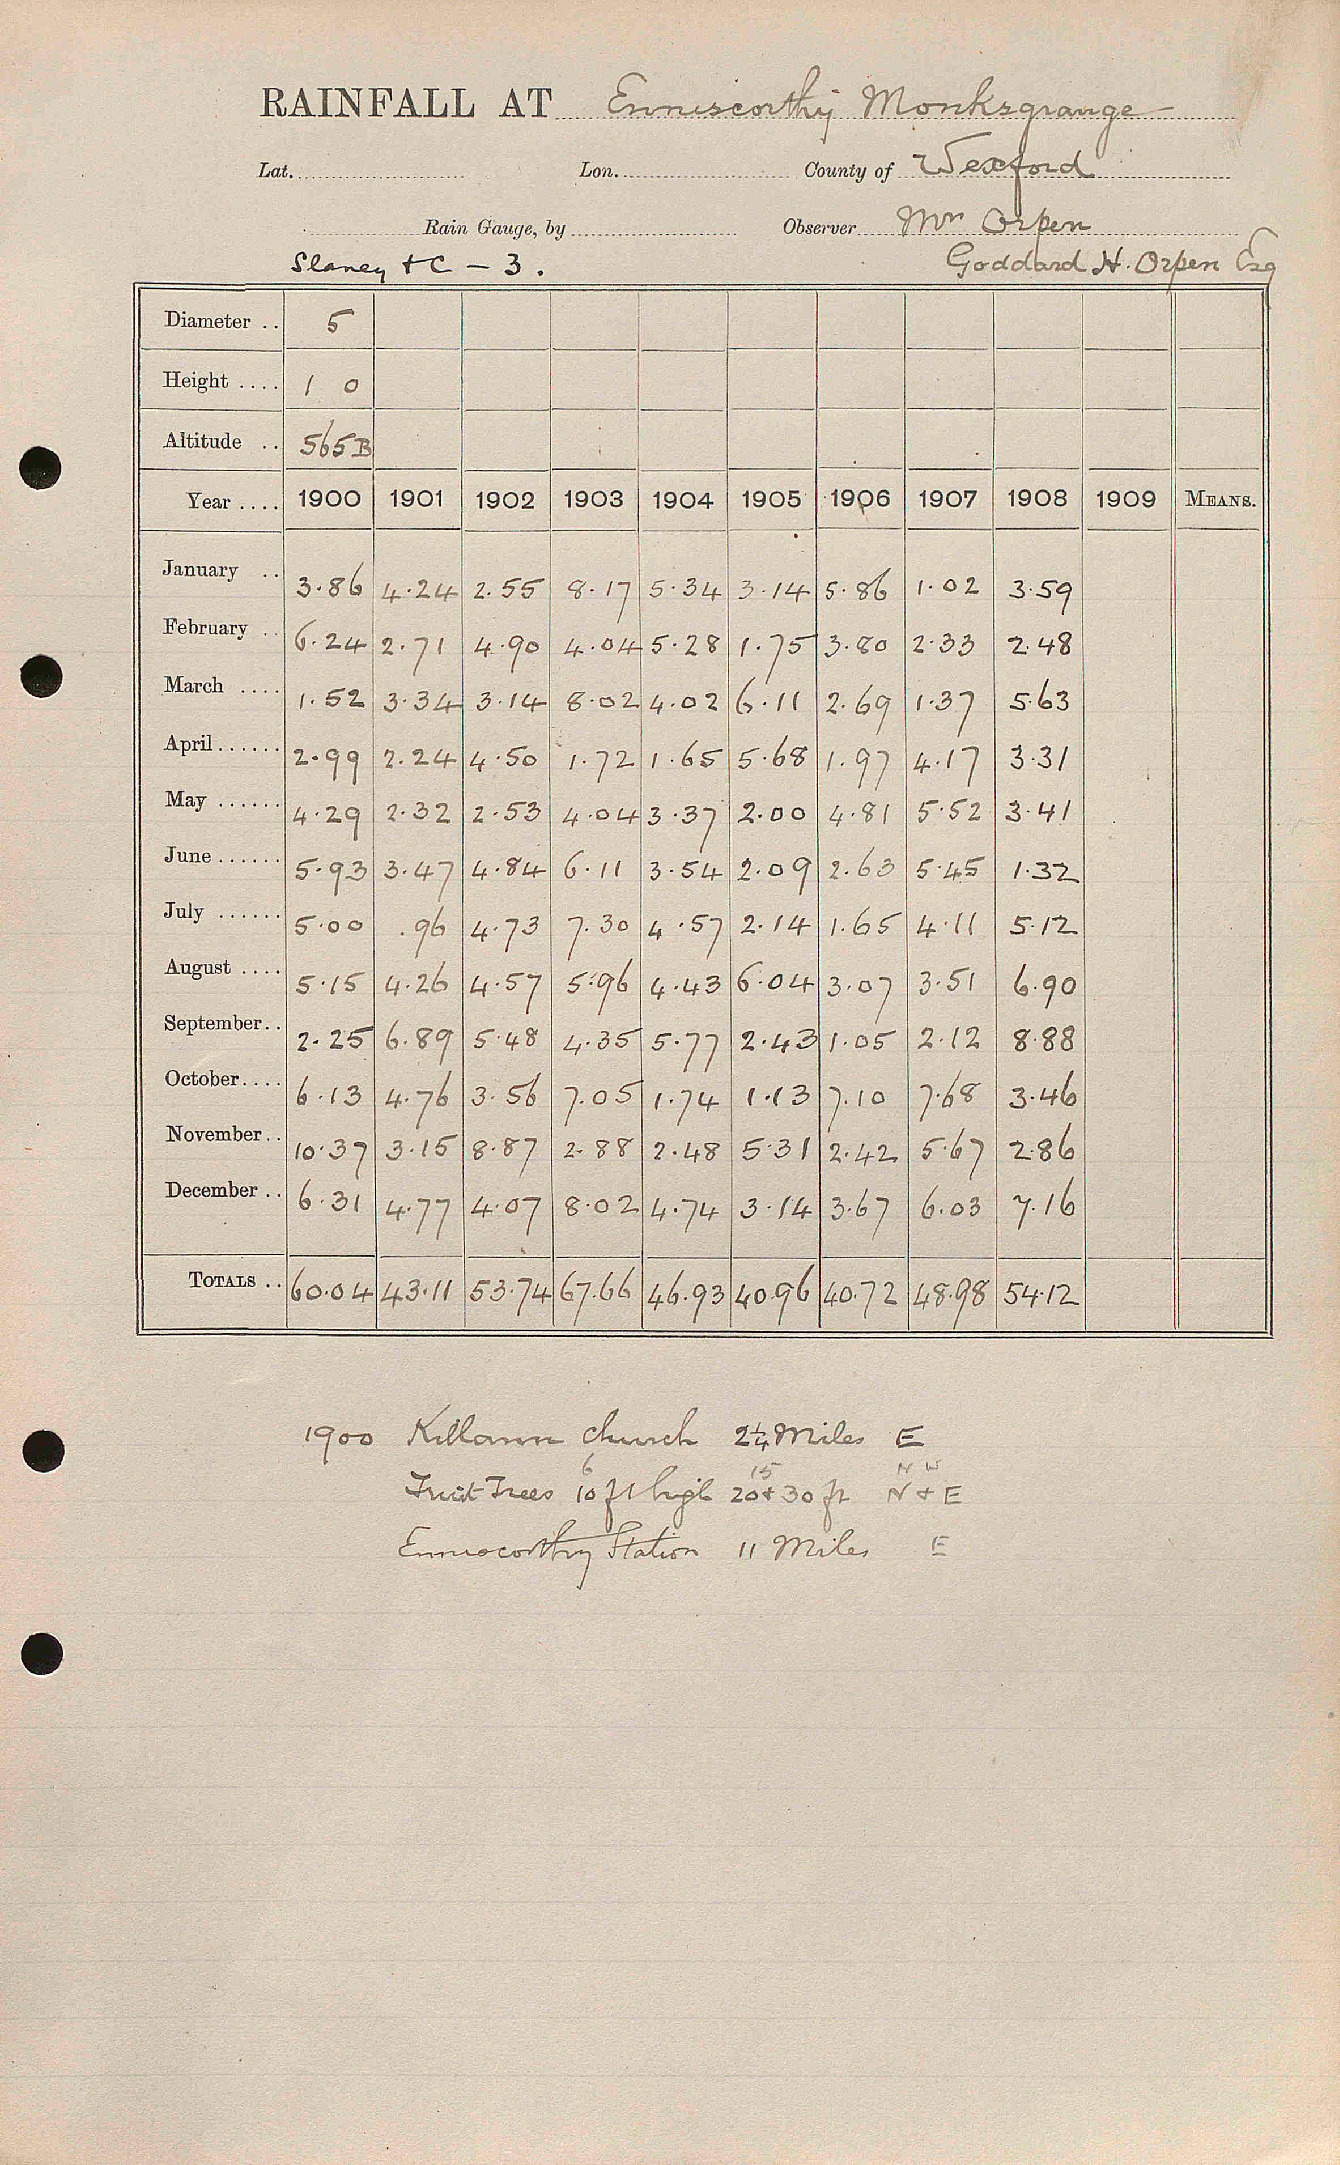 RAINFALL AT Enniscorthy Monksgrange
Lat. Lon. County of Wexford
Rain Gauge, by Observer Mrs Orpen
Slaney + C - 3. Goddard H. Orpen Esq
Diameter .. 5
Height .... 1 0
Altitude .. 565 B
Year .... 1900 1901 1902 1903 1904 1905 1906 1907 1908 1909 MEANS.
January .. 3.86 4.24 2.55 8.17 5.34 3.14 5.86 1.02 3.59
February .. 6.24 2.71 4.90 4.04 5.28 1.75 3.80 2.33 2.48
March .... 1.52 3.34 3.14 8.02 4.02 6.11 2.69 1.37 5.63
April...... 2.99 2.24 4.50 1.72 1.65 5.68 1.97 4.17 3.31
May ...... 4.29 2.32 2.53 4.04 3.37 2.00 4.81 5.52 3.41
June...... 5.93 3.47 4.84 6.11 3.54 2.09 2.63 5.45 1.32
July ...... 5.00 .96 4.73 7.30 4.57 2.14 1.65 4.11 5.12
August .... 5.15 4.26 4.57 5.96 4.43 6.04 3.07 3.51 6.90
September.. 2.25 6.89 5.48 4.35 5.77 2.43 1.05 2.12 8.88
October.... 6.13 4.76 3.56 7.05 1.74 1.13 7.10 7.68 3.46
November.. 10.37 3.15 8.87 2.88 2.48 5.31 2.42 5.67 2.86
December .. 6.31 4.77 4.07 8.02 4.74 3.14 3.67 6.03 7.16
TOTALS .. 60.04 43.11 53.74 67.66 46.93 40.96 40.72 48.98 54.12
1900 Killann church 2¼ Miles E
6 15 N W
Fruit Trees 10 ft high 20 + 30 ft N + E
Enniscorthy Station 11 Miles E